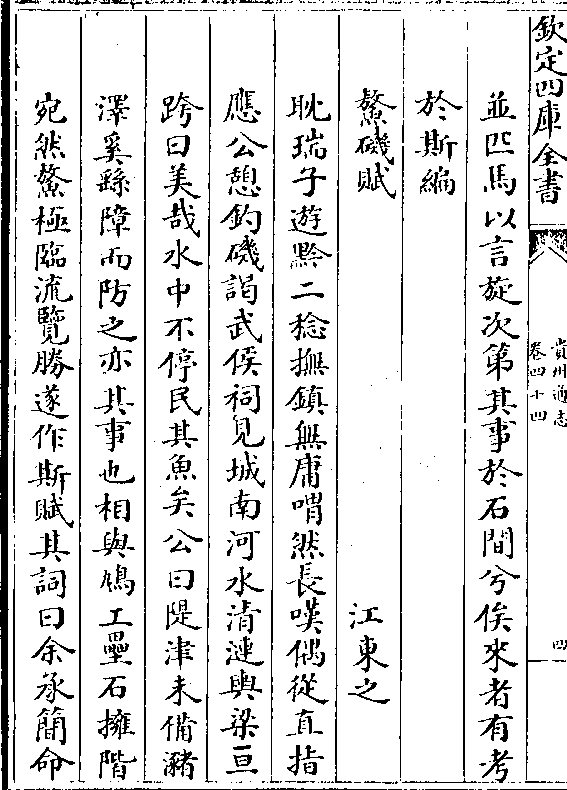 欽定四庫全書
貴州通志
卷四十四
四
並匹馬以言旋次第其事於石間兮俟來者有考
於斯編
鰲磯賦
江東之
耽瑞子遊黔二稔撫鎮無庸喟然長嘆偶從直指
應公憩釣磯謁武侯祠見城南河水清漣輿梁亘
跨曰美哉水中不停民其魚矣公曰隄津未備瀦
澤奚繇障而防之亦其事也相與鳩工壘石擁階
宛然鰲極臨流覽勝遂作斯賦其詞曰余承簡命